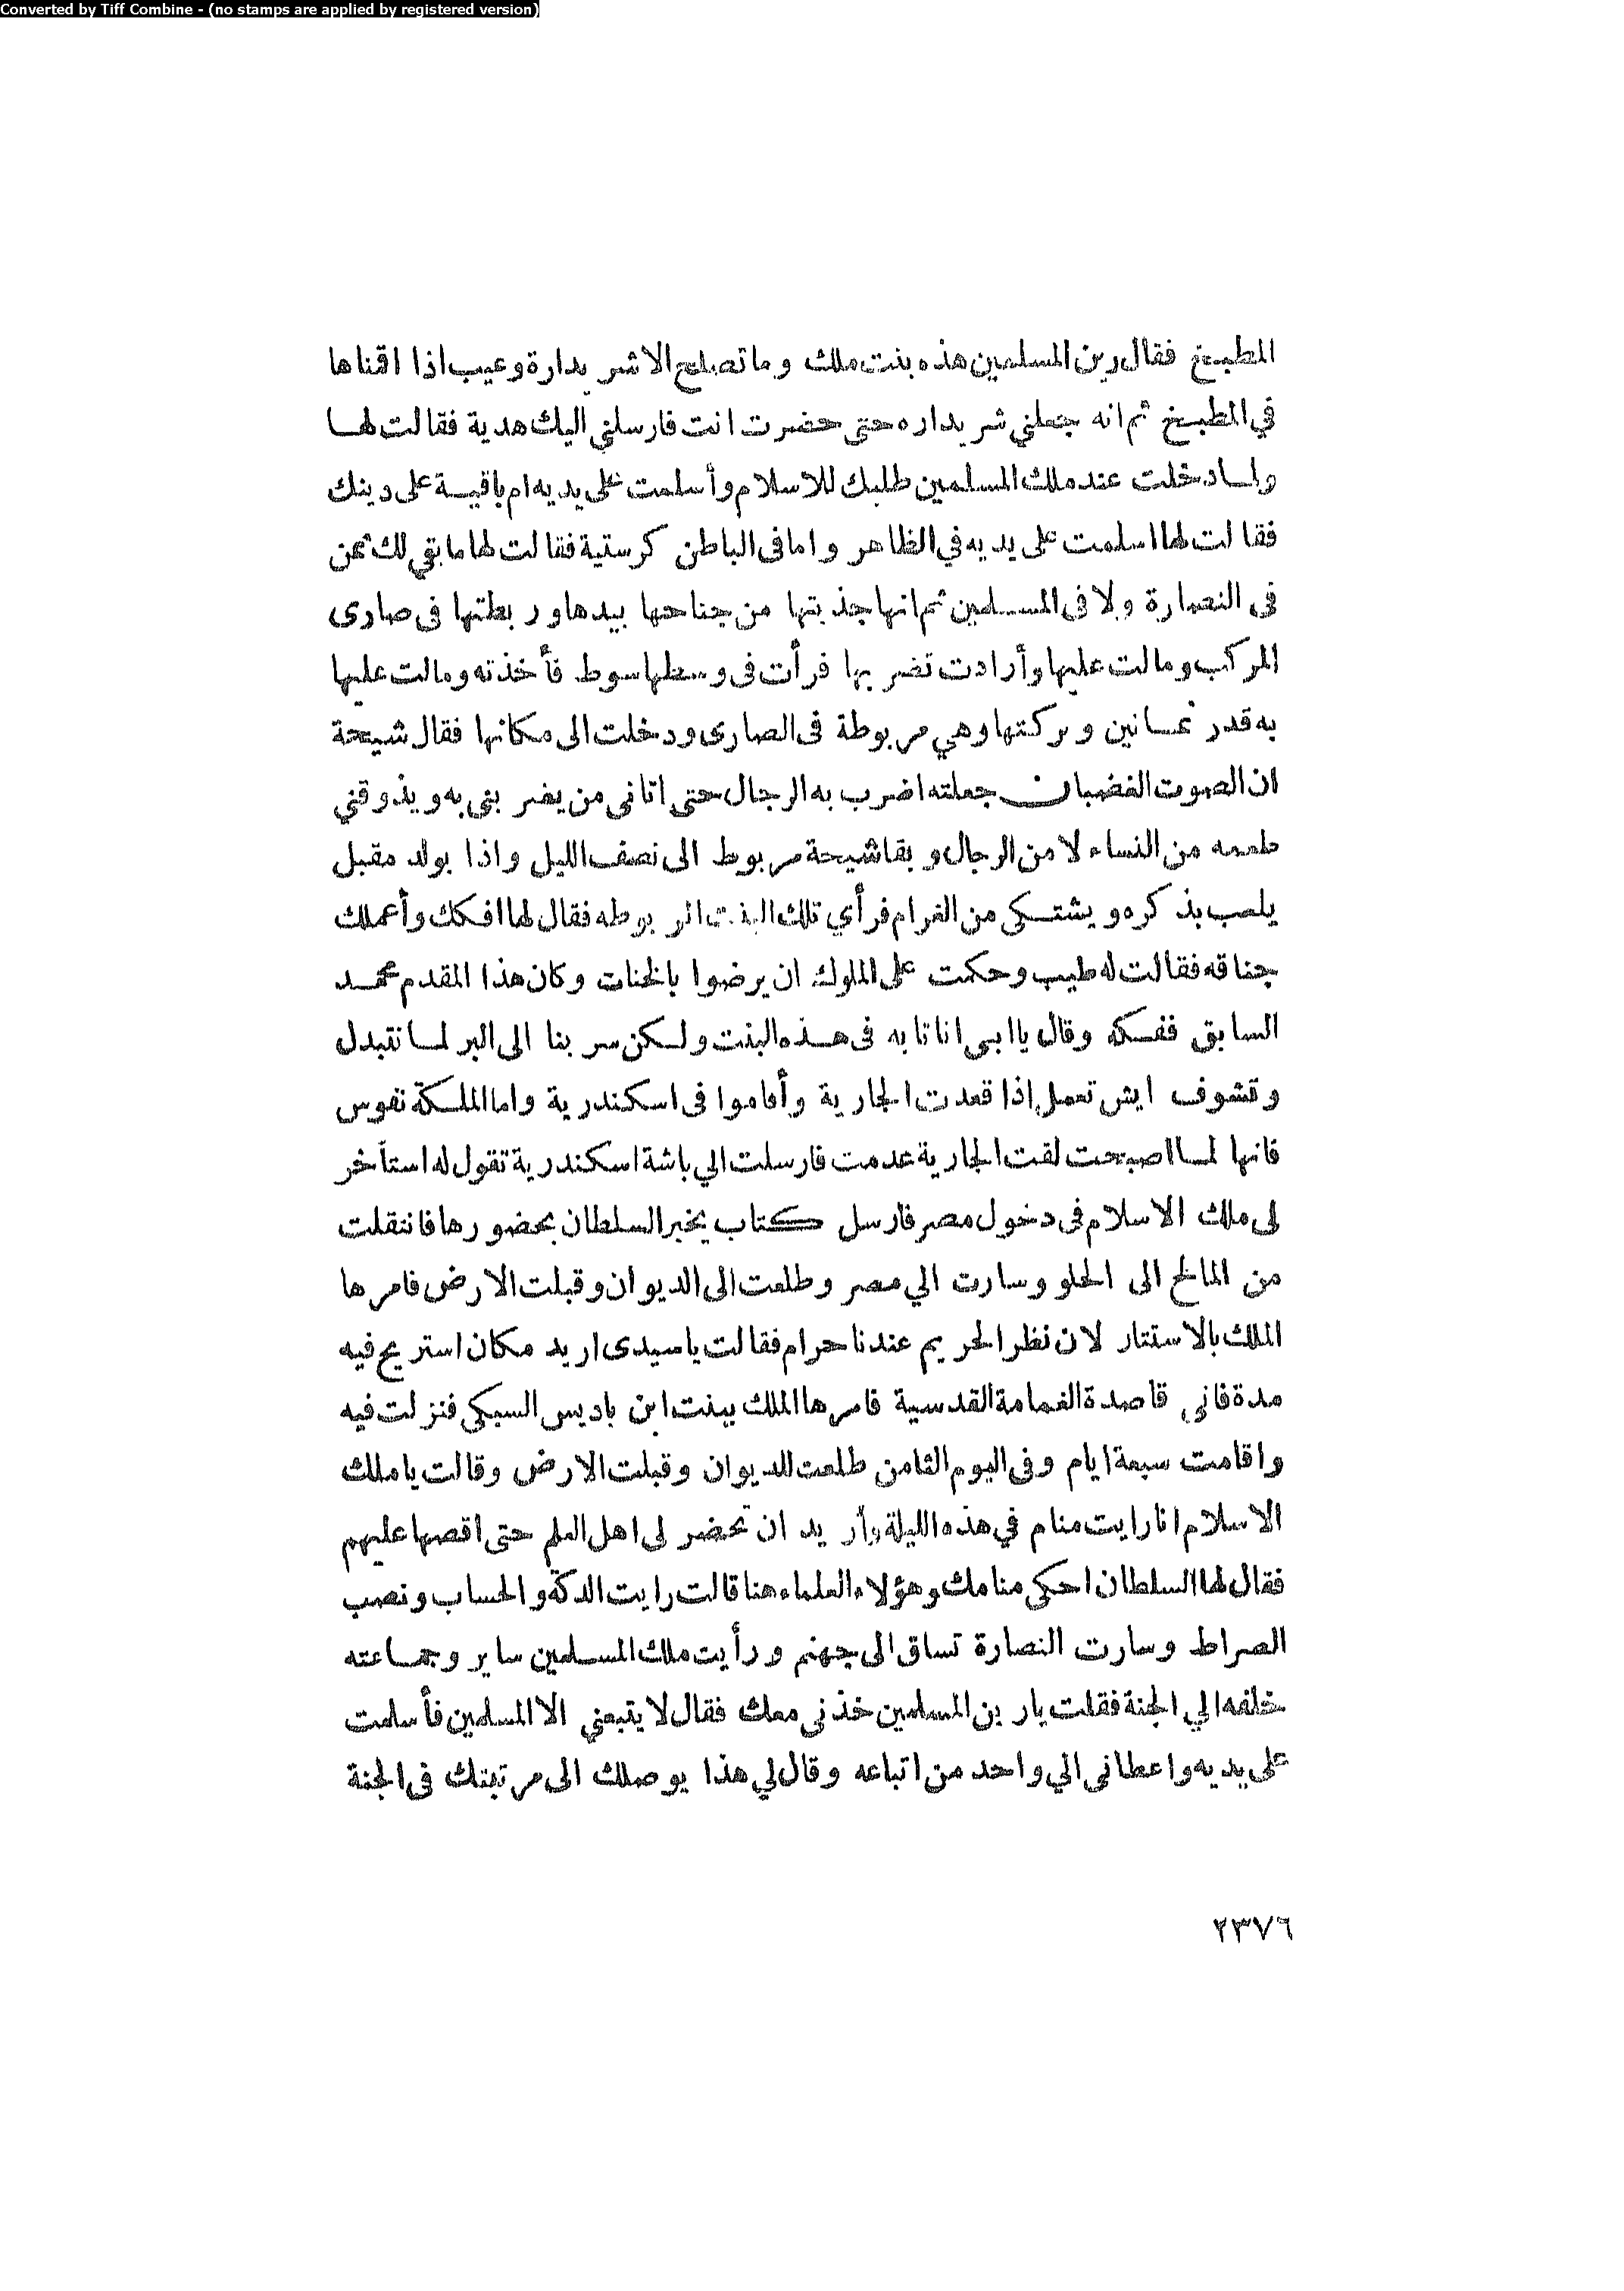 Converted by Tiff Combine - (no stamps are applied by registered version)
المطبخ فقال رين المسلمين هذه بنت ملك وما تصلح الا شر بدارة وعيب اذا اقناها
في المطبخ ثم انه جعلني شر بداره حتى حضرت انت فارسلني اليك هدية فقالت لها
ولما دخلت عند ملك المسلمين طلبك للاسلام وأسلمت على يديه ام باقية على دينك
فقالت لها اسلمت على يديه في الظاهر واما فى الباطن كرستية فقالت لها ما بقي لك ثمن
فى النصارة ولا فى المسلمين ثم انها جذبتها من جناحها بيدها وربطتها فى صارى
المركب ومالت عليها وأرادت تضربها فرأت فى وسطها سوط فأخذته ومالت عليها
به قدر ثمانين وتركتها وهي مربوطة فى الصارى ودخلت الى مكانها فقال شيحة
ان الصوت الغضبان جعلته اضرب به الرجال حتى اتانى من يضربنى به ويذوقني
طعمه من النساء لا من الرجال وبقا شيحة مربوط الى نصف الليل واذا بولد مقبل
يلعب بذكره ويشتكى من الغرام فرأي تلك البنت المربوطه فقال لها افكك وأعملك
جناقه فقالت له طيب وحكمت على الملوك ان يرضوا بالخنات وكان هذا المقدم محمد
السابق ففكه وقال يا ابى انا تا به فى هذه البنت ولكن سر بنا الى البر لما نتبدل
وتشوف ايش تعمل اذا قعدت الجارية وأقاموا فى اسكندرية واما الملكة تقوس
فانها لما اصبحت لقت الجارية عدمت فارسلت الي باشة اسكندرية تقول له استأخر
لى ملك الاسلام فى دخول مصر فارسل كتاب يخبر السلطان بحضورها فانتقلت
من المالح الى الحلو وسارت الي مصر وطلعت الى الديوان وقبلت الارض فامرها
الملك بالاستتار لان نظر الحريم عندنا حرام فقالت ياسيدى اريد مكان استريح فيه
مدة فانى قاصدة الغمامة القدسية فامرها الملك ببنت ابن باديس السبكى فنزلت فيه
واقامت سبعة ايام وفى اليوم الثامن طلعت للديوان وقبلت الارض وقالت يا ملك
الاسلام انا رايت منام في هذه الليلة وأريد ان تحضر لى اهل العلم حتى اقصها عليهم
فقال لها السلطان احكى منامك وهؤلاء العلماء هنا قالت رايت الدكة والحساب ونصب
الصراط وسارت النصارة تساق الى جهنم ورأيت ملك المسلمين ساير وجماعته
خلفه الي الجنة فقلت يارين المسلمين خذنى معك فقال لا يتبعني الا المسلمين فأسلمت
على يديه واعطانى الي واحد من اتباعه وقال لي هذا يوصلك الى مرتبتك فى الجنة
٢٣٧٦